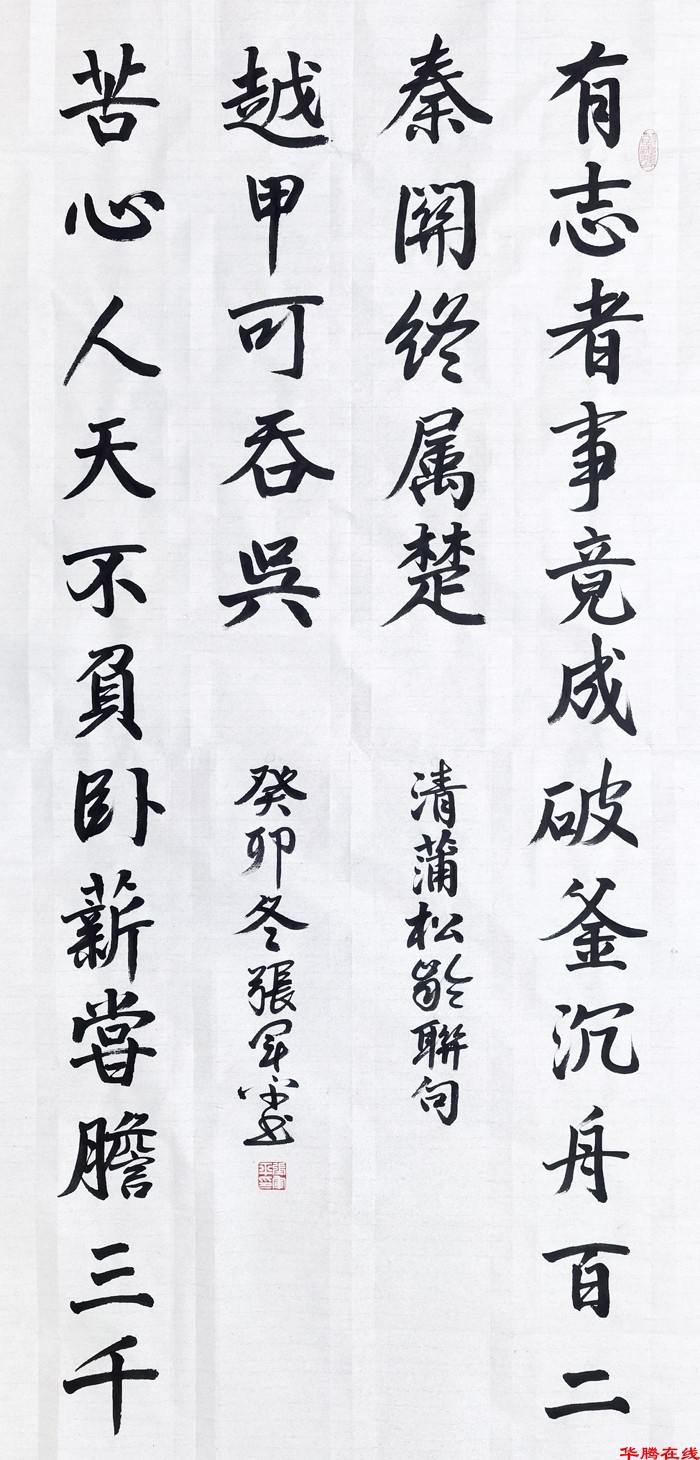 有志者事竟成破釜沉舟百二
秦關終属楚
清蒲松齡聯句
苦心人天不負卧薪嘗膽三千
越甲可吞吳
癸卯冬張军平书
华腾在线